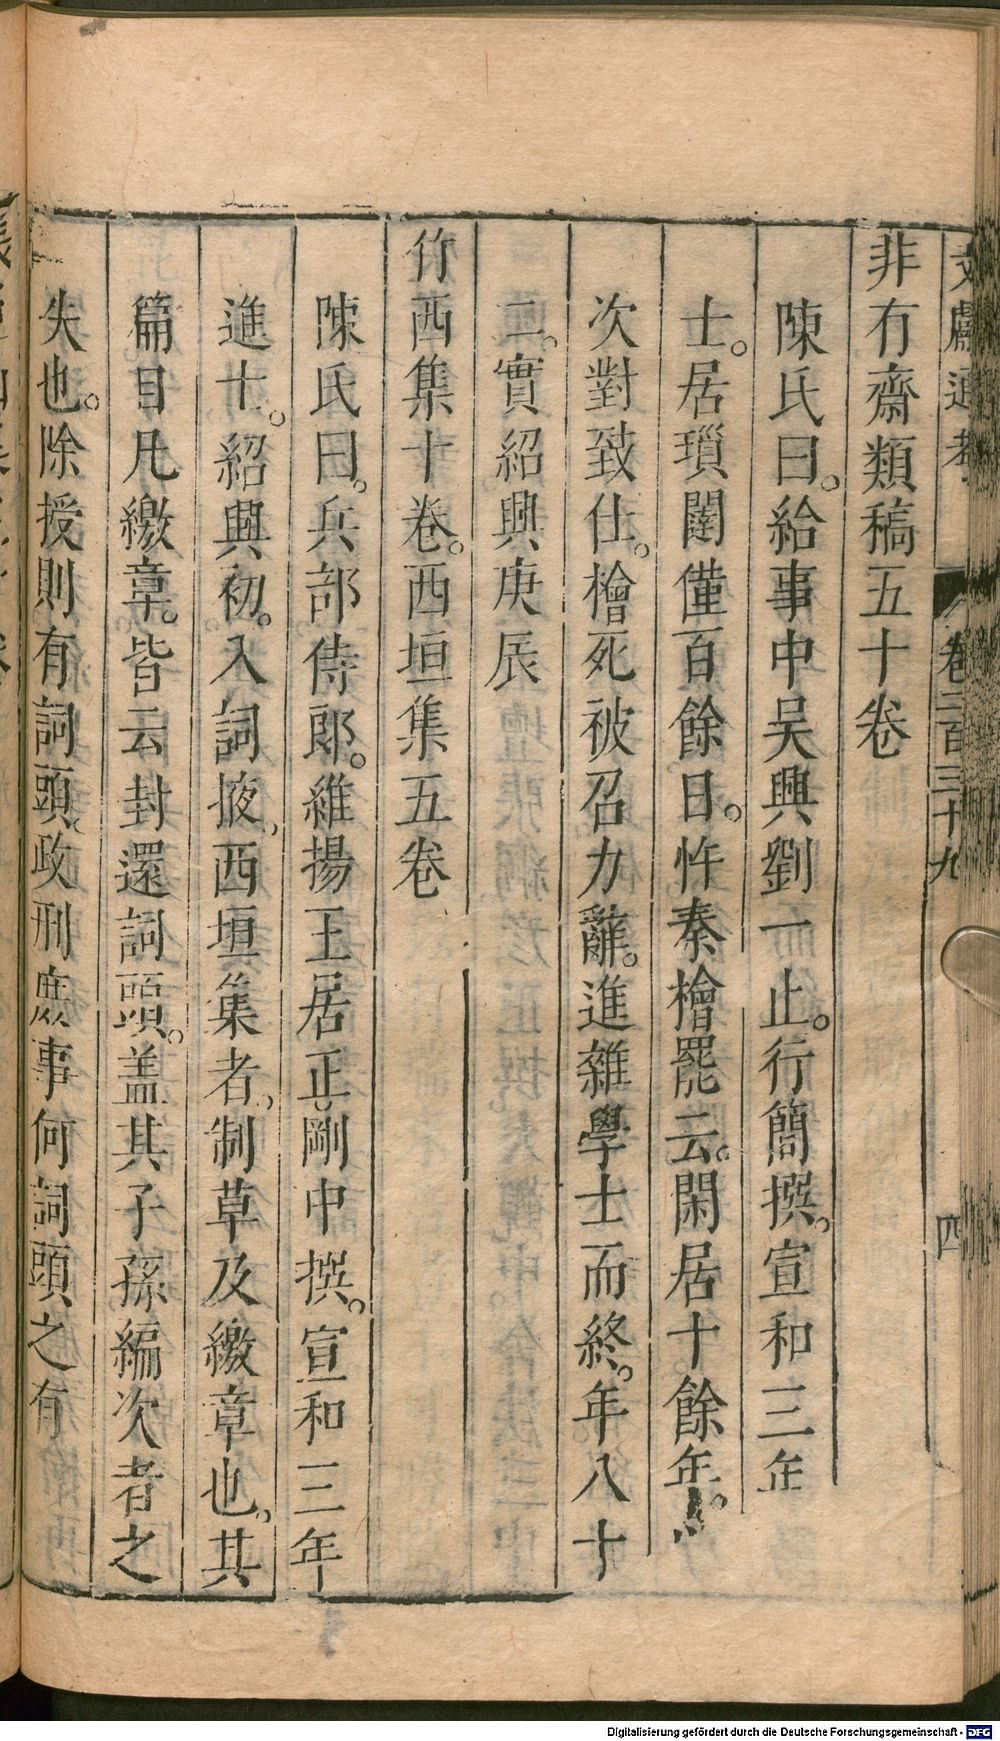 文獻通考 卷二百三十九 四
非有齋類稿五十卷
陳氏曰。給事中吳興劉一止。行簡撰。宣和三年
士。居瑣闥僅百餘日。忤秦檜罷云。閑居十餘年。
次對致仕。檜死被召力辭。進雜學士而終。年八十
二。實紹興庚辰
竹西集十卷。西垣集五卷
陳氏曰。兵部侍郎。維揚王居正。剛中撰。宣和三年
進士。紹興初。入詞掖。西垣集者。制草及繳章也。其
篇目凡繳章。皆云封還詞頭。盖其子孫編次者之
失也。除授則有詞頭。政刑庶事何詞頭之有
Digitalisierung gefördert durch die Deutsche Forschungsgemeinschaft - DFG